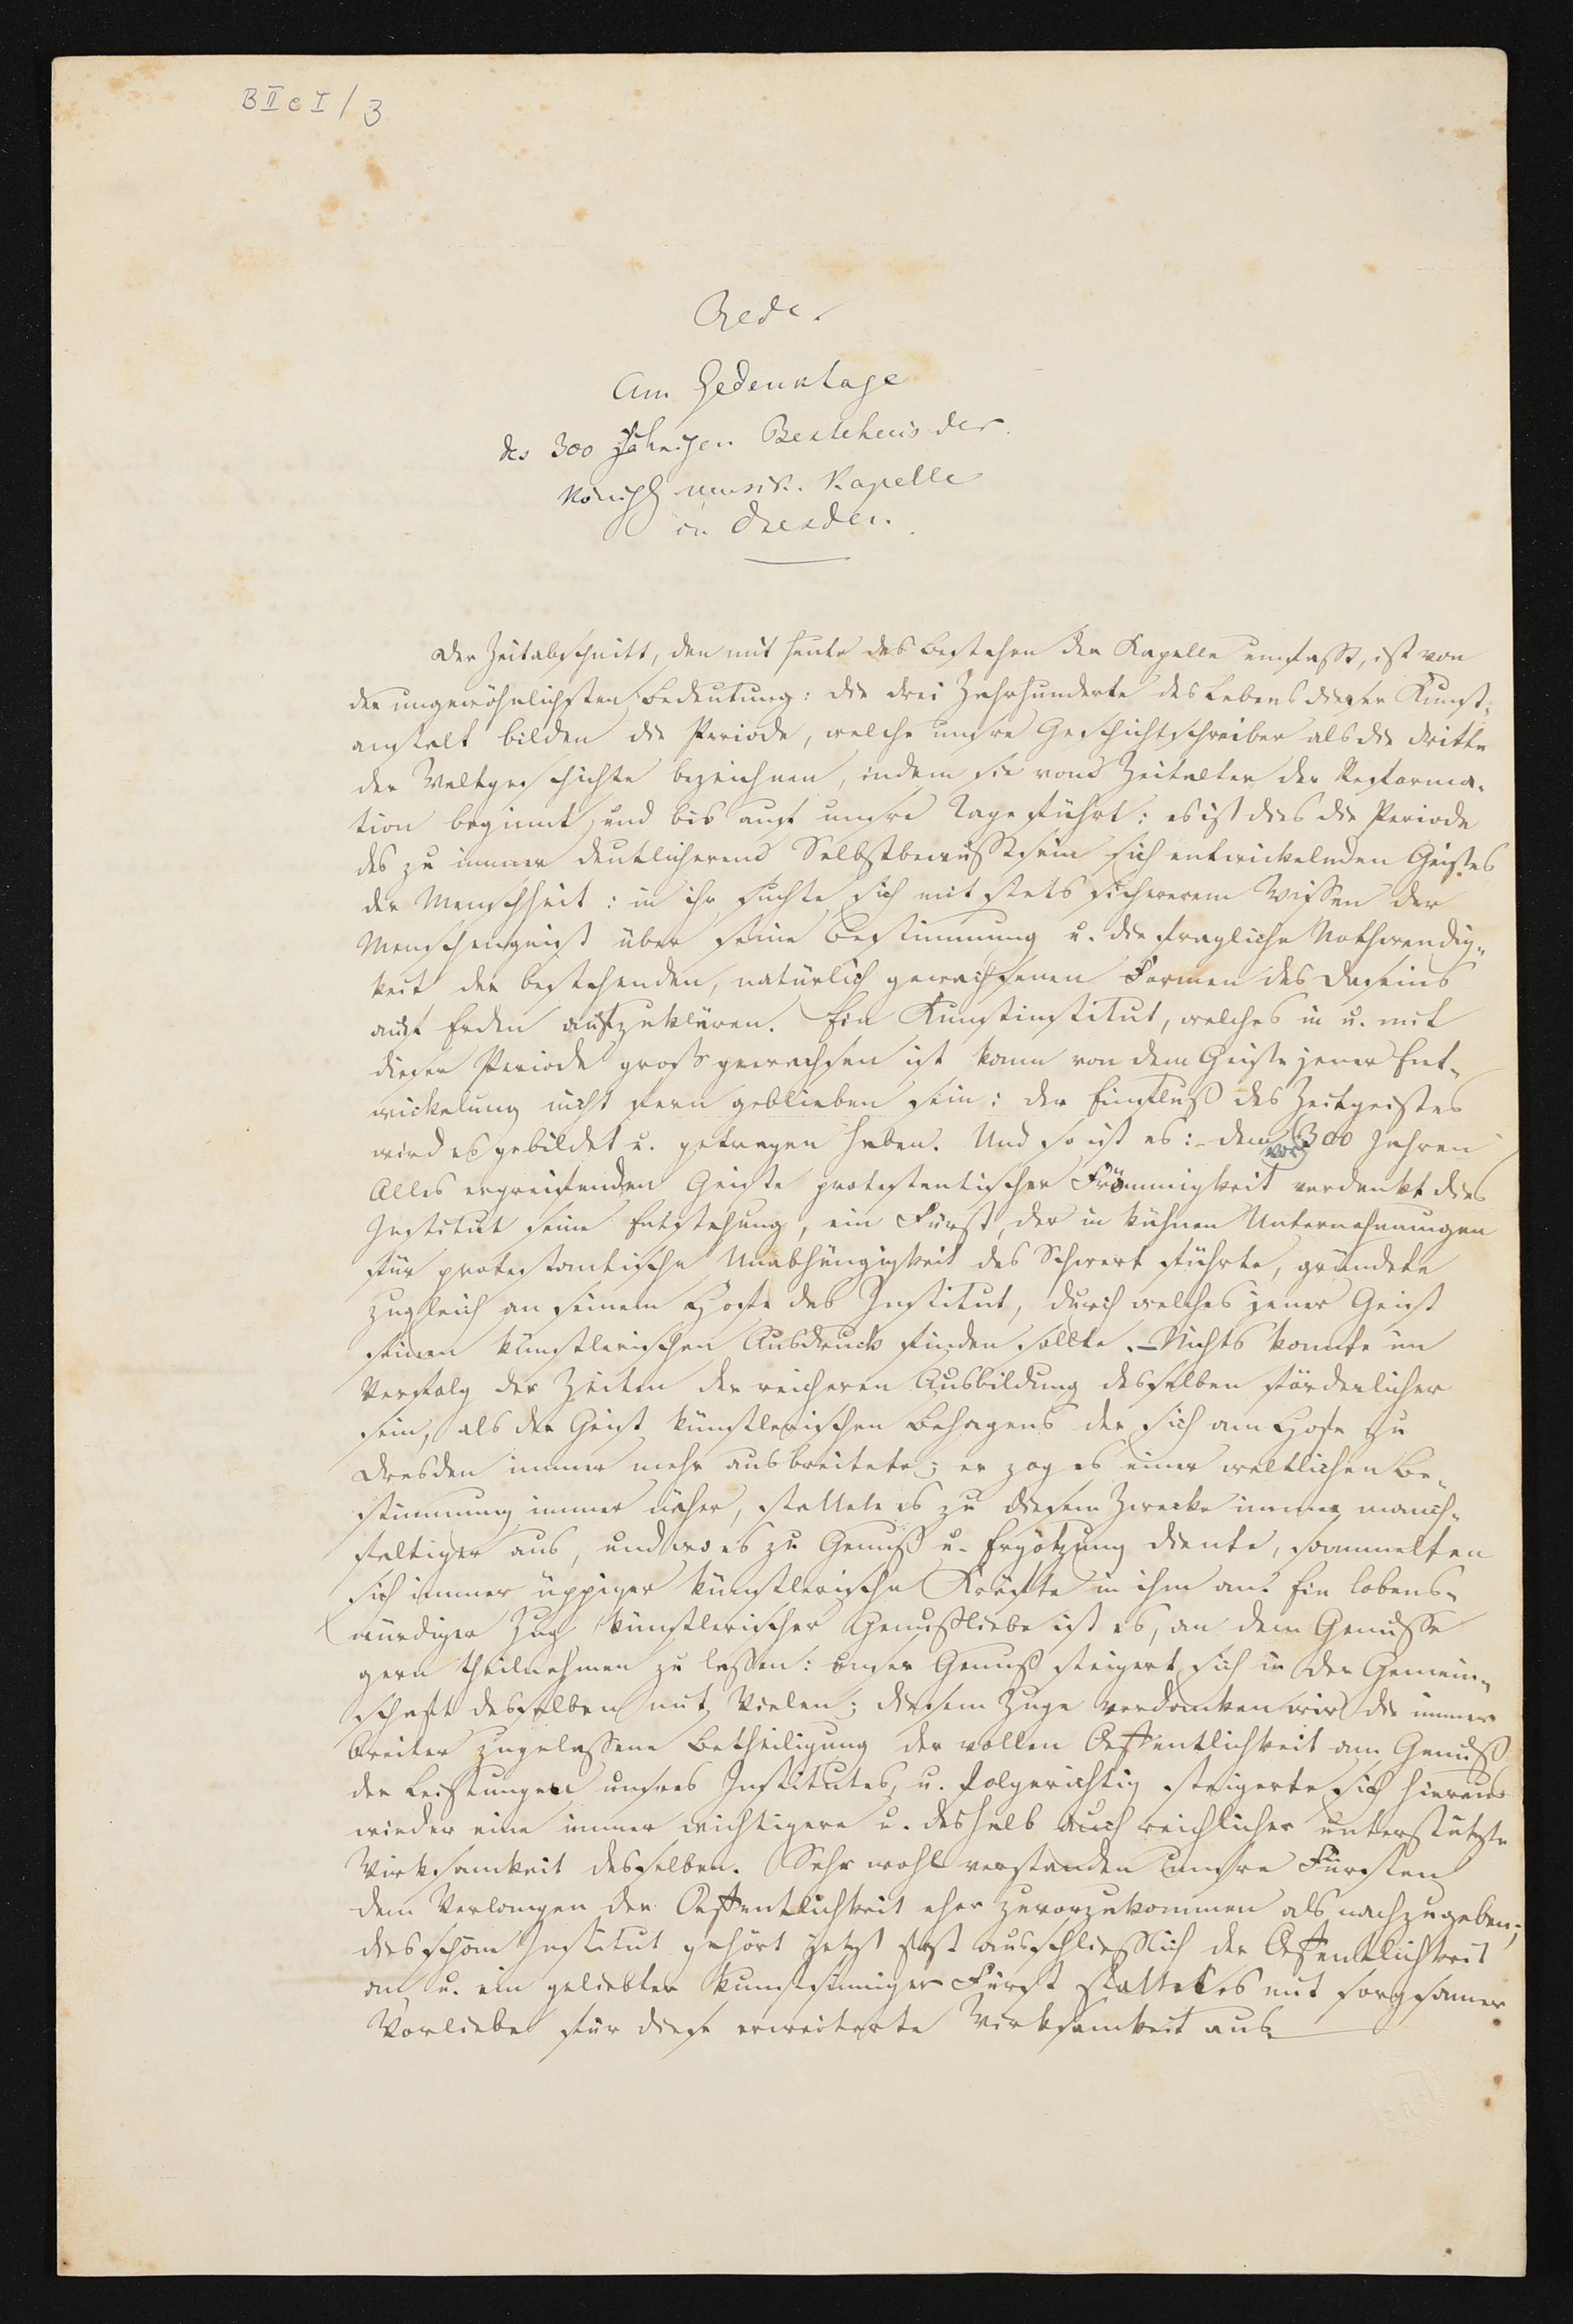 B II c I / 3
Rede
am Gedenktage
des 300 jährigen Bestehens der
Königl musik. Kapelle
in Dresden.
Der Zeitabschnitt, den mit heute das Bestehen der Kapelle umfaßt, ist von
der ungewöhnlichsten Bedeutung: die drei Jahrhunderte des Lebens dieser Kunst-
anstalt bilden die Periode, welche unsre Geschichtschreiber als die dritte
der Weltgeschichte bezeichnen, indem sie vom Zeitalter der Reforma-
tion beginnt und bis auf unsre Tage führt: es ist dies die Periode
des zu immer deutlicherem Selbstbewußtsein sich entwickelnden Geistes
der Menschheit: in ihr suchte sich mit stets sichererem Wissen der
Menschengeist über seine Bestimmung u. die fragliche Nothwendig-
keit der bestehenden, natürlich gewachsenen Formen des Daseins
auf Erden aufzuklären. Ein Kunstinstitut, welches in u. mit
dieser Periode groß gewachsen ist kann von dem Geiste jener Ent-
wickelung nicht fern geblieben sein: der Einfluß des Zeitgeistes
wird es gebildet u. getragen haben. Und so ist es: dem vor 300 Jahren
Alles ergreifenden Geiste protestantischer Frömmigkeit verdankt dies
Institut seine Entstehung, ein Fürst, der in kühnen Unternehmungen
für protestantische Unabhängigkeit das Schwert führte, gründete
zugleich an seinem Hofe das Institut, durch welches jener Geist
seinen künstlerischen Ausdruck finden sollte. – Nichts konnte im
Verfolg der Zeiten der reicheren Ausbildung desselben förderlicher
sein, als der Geist künstlerischen Behagens der sich am Hofe zu
Dresden immer mehr ausbreitete; er zog es einer weltlichen Be-
stimmung immer näher, stattete es zu diesem Zwecke immer manich-
faltiger aus, und wo es zu Genuß u. Ergötzung diente, sammelten
sich immer üppiger künstlerische Kräfte in ihm an. Ein lobens-
würdiger Zug künstlerischer Genußliebe ist es, an dem Genusse
gern theilnehmen zu lassen: unser Genuß steigert sich in der Gemein-
schaft desselben mit Vielen; diesem Zuge verdanken wir die immer
breiter zugelassene Betheiligung der vollen Oeffentlichkeit am Genuß
der Leistungen unsres Institutes, u. folgerichtig steigerte sich hieraus
wieder eine immer wichtigere u. deshalb auch reichlicher unterstützte
Wirksamkeit desselben. Sehr wohl verstanden unsre Fürsten
dem Verlangen der Oeffentlichkeit eher zuvorzukommen als nachzugeben;
dies schöne Institut gehört jetzt fast ausschließlich der Oeffentlichkeit
an u. ein geliebter kunstsinniger Fürst stattet es mit sorgsamer
Vorliebe für diese erweiterte Wirksamkeit aus.